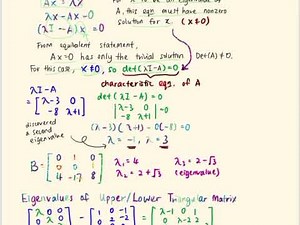 Ax = λx
λx - Ax = 0
(λI - A)x = 0
A, this eqn must have nonzero
solution for x. (x≠0)
From equivalent statement,
Ax = 0 has only the trivial solution Det(A)≠0.
For this case, x≠0, so det(λI-A)=0
characteristic eqn. of A
λI - A
= [λ-3 0
-8 λ+1]
det(λI-A)
= |λ-3 0
-8 λ+1|
(λ-3)(λ+1)-0(-8)=0
discovered a second eigenvalue
λ = -1, λ = 3
B = [0 1 0
0 0 1
4 -17 8]
λ₁ = 4 λ₂ = 2-√3
λ₃ = 2+√3 (eigenvalue)
Eigenvalues of Upper/Lower Triangular Matrix